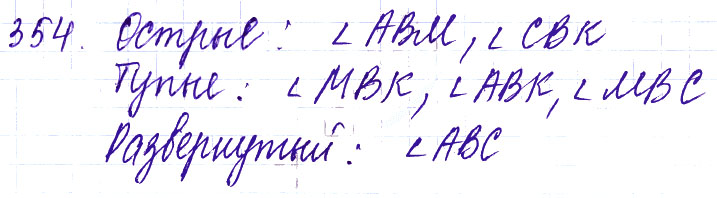 354. Острые: ∠ABM, ∠CBK
Тупые: ∠MBK, ∠ABK, ∠MBC
Развернутый: ∠ABC